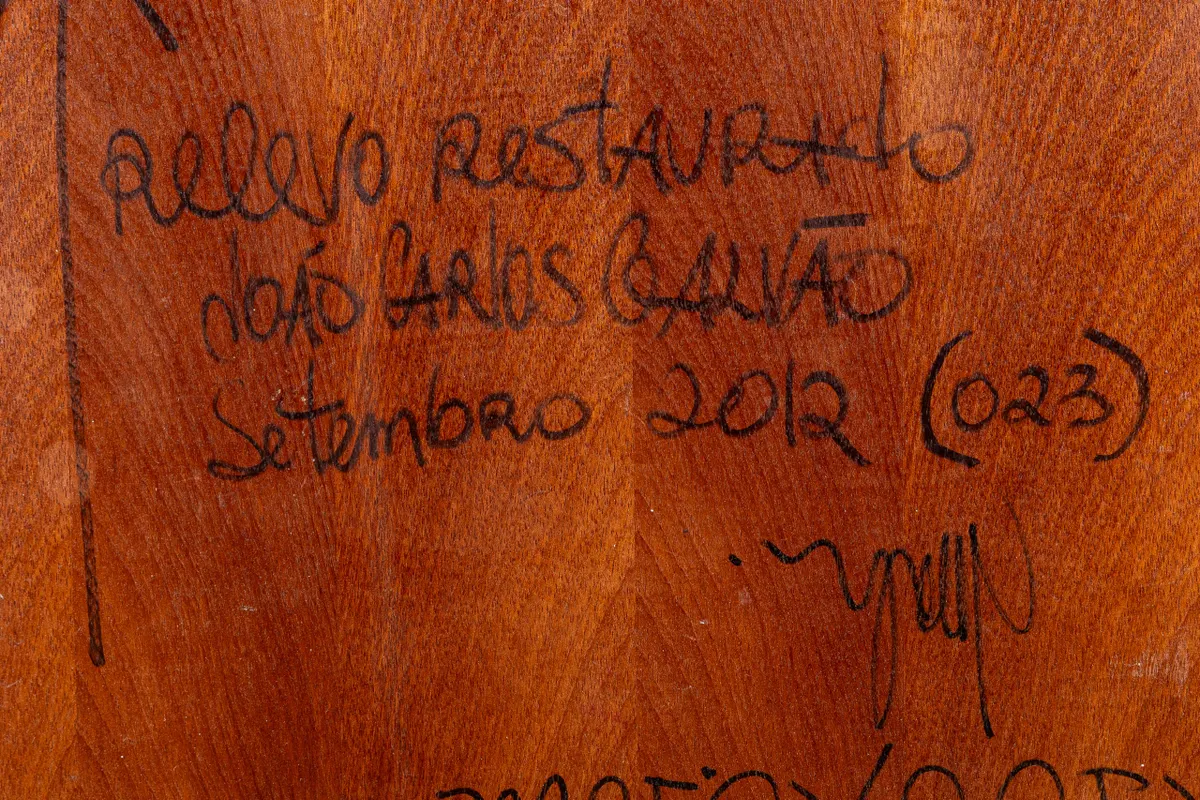 Relevo RestAURAdo
JOÃO CARlos GALVÃO
Setembro 2012 (023)